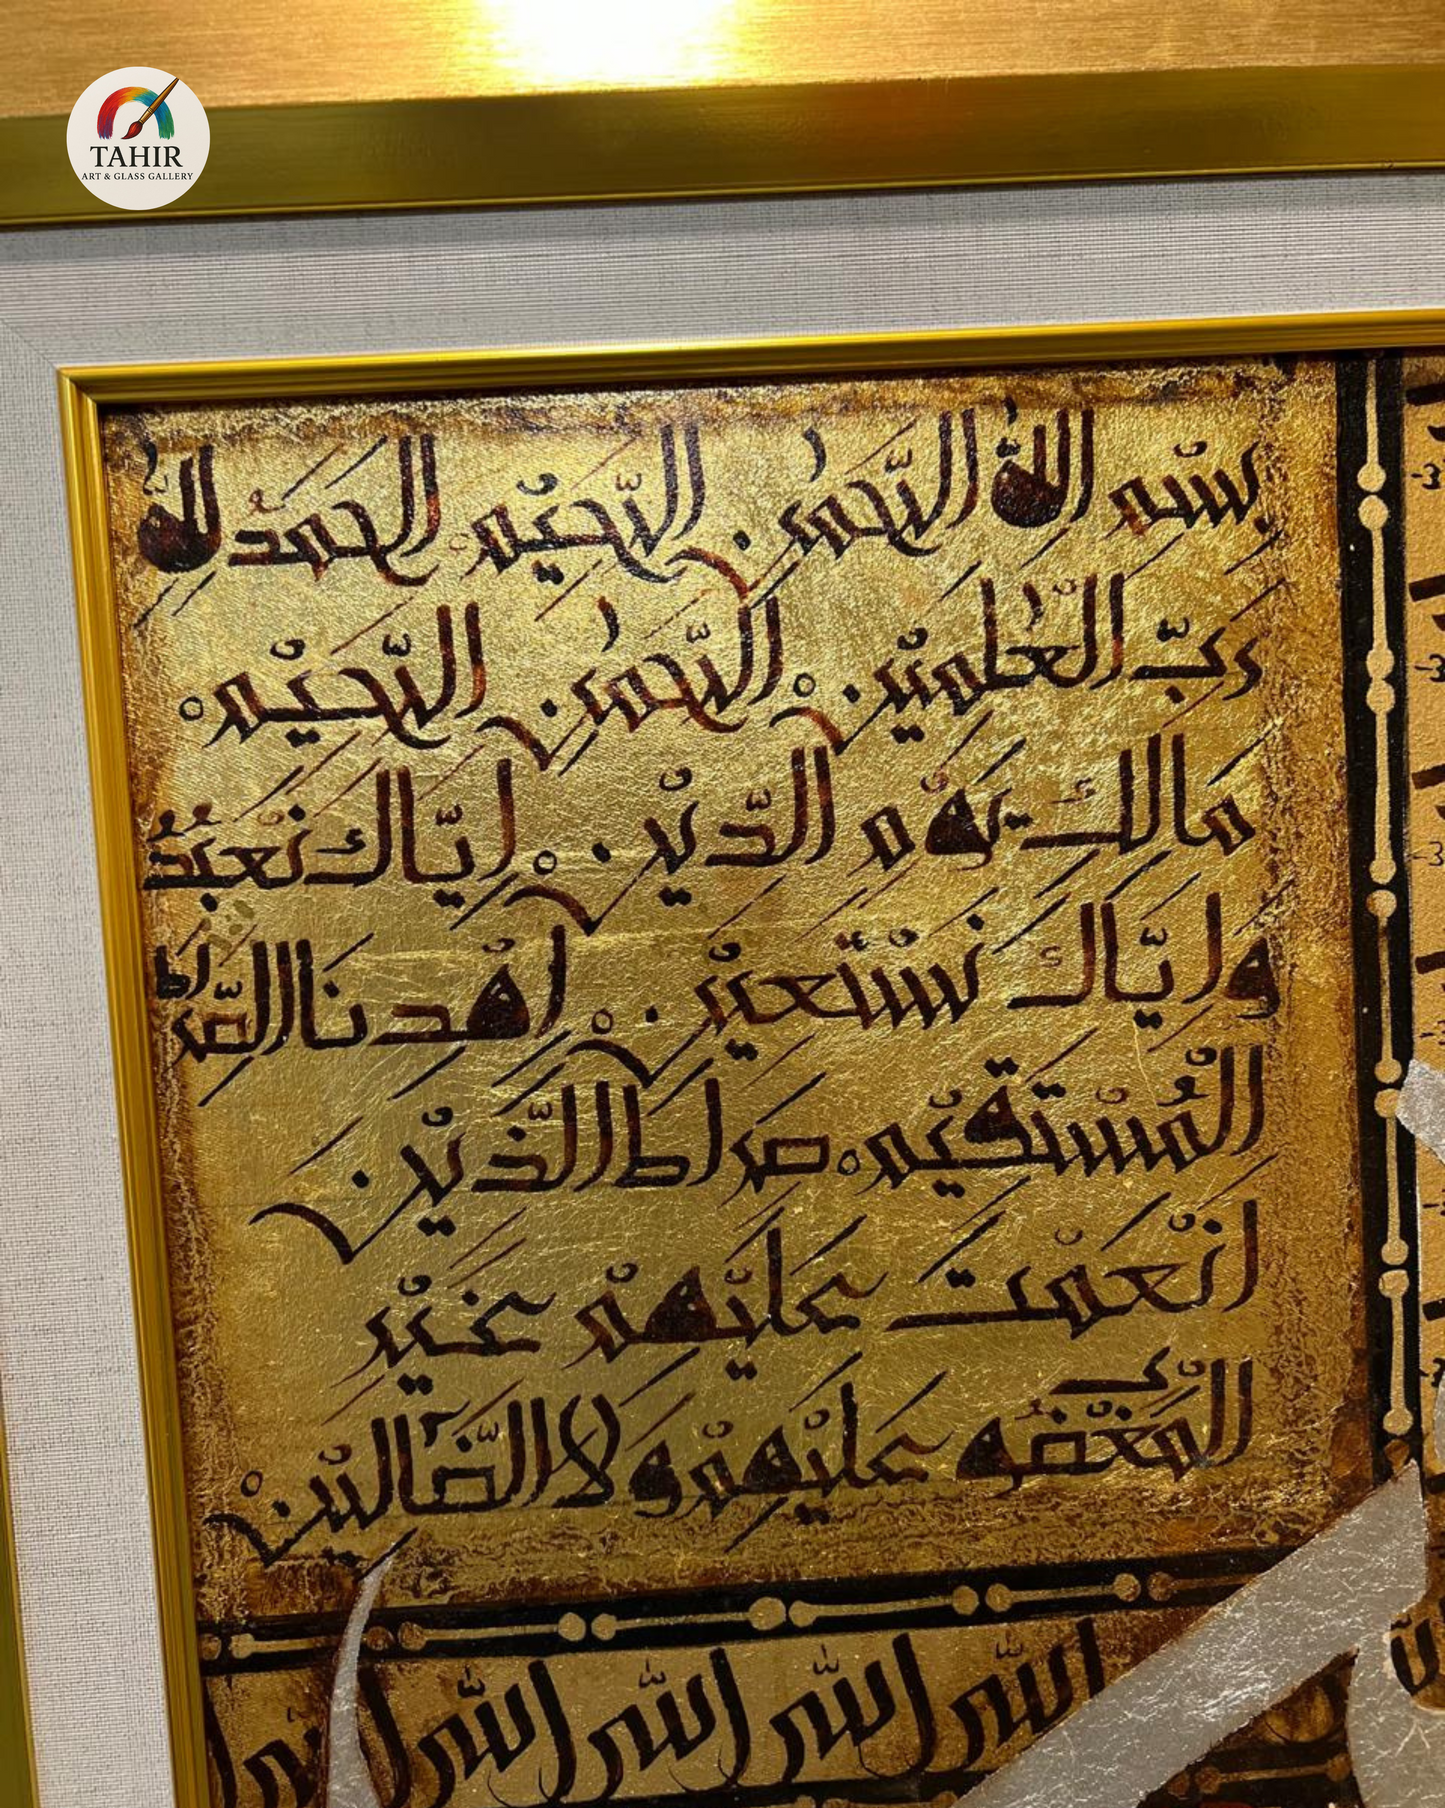 TAHIR
ART & GLASS GALLERY
بِسْمِ اللّٰهِ الرَّحْمٰنِ الرَّحِيْمِ الْحَمْدُ لِلّٰهِ
رَبِّ الْعٰلَمِيْنَ الرَّحْمٰنِ الرَّحِيْمِ
مَالِكِ يَوْمِ الدِّيْنِ اِيَّاكَ نَعْبُدُ
وَاِيَّاكَ نَسْتَعِيْنُ اِهْدِنَا الصِّرَاطَ
الْمُسْتَقِيْمَ صِرَاطَ الَّذِيْنَ
اَنْعَمْتَ عَلَيْهِمْ غَيْرِ
الْمَغْضُوْبِ عَلَيْهِمْ وَلَا الضَّالِّيْنَ
الله الله الله الله